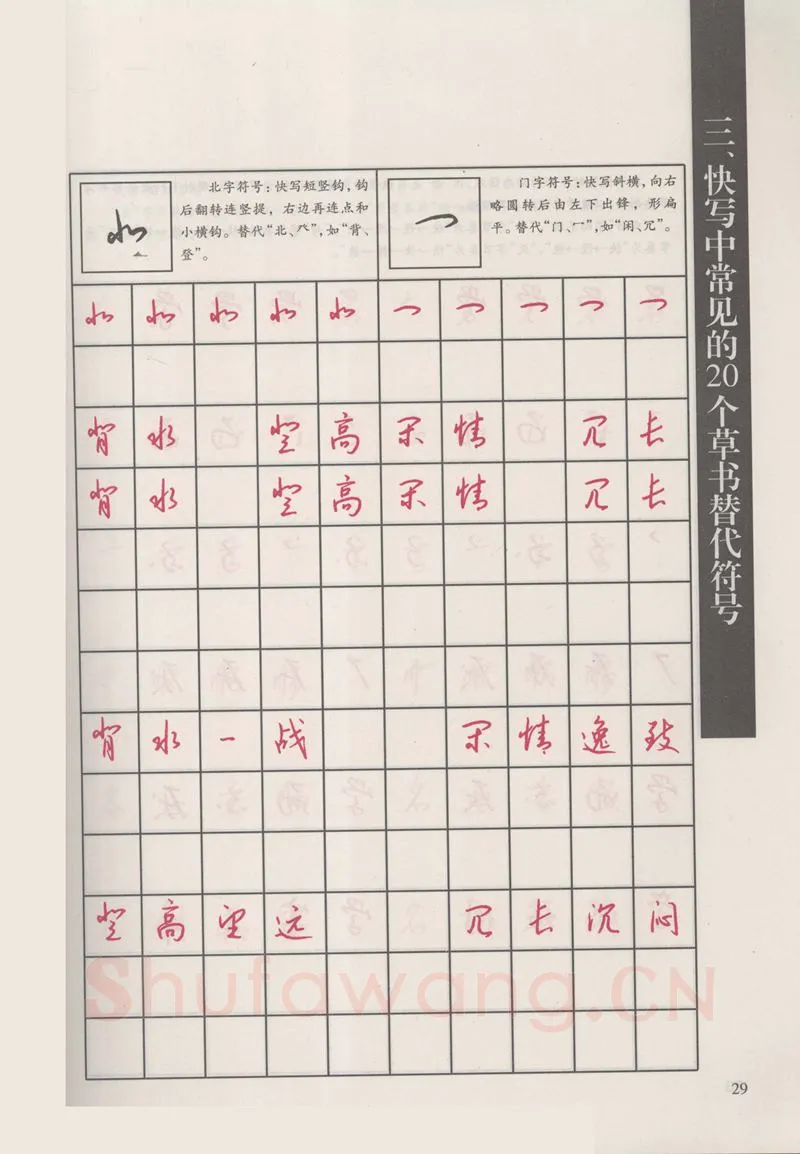 三、快写中常见的20个草书替代符号
北字符号：快写短竖钩，钩
后翻转连竖提，右边再连点和
小横钩。替代“北、癶”，如“背、
登”。
门字符号：快写斜横，向右
略圆转后由左下出锋，形扁
平。替代“门、冖”，如“闲、冗”。
背水 登高闲情 冗长
背水 登高闲情 冗长
背水一战 闲情逸致
登高望远 冗长沉闷
Shufawang.CN
29